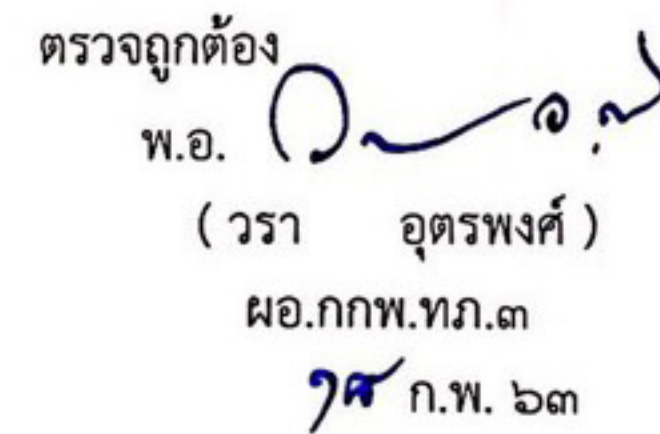 ตรวจถูกต้อง
พ.อ.
( วรา อุตรพงศ์ )
ผอ.กกพ.ทภ.๓
ก.พ. ๖๓